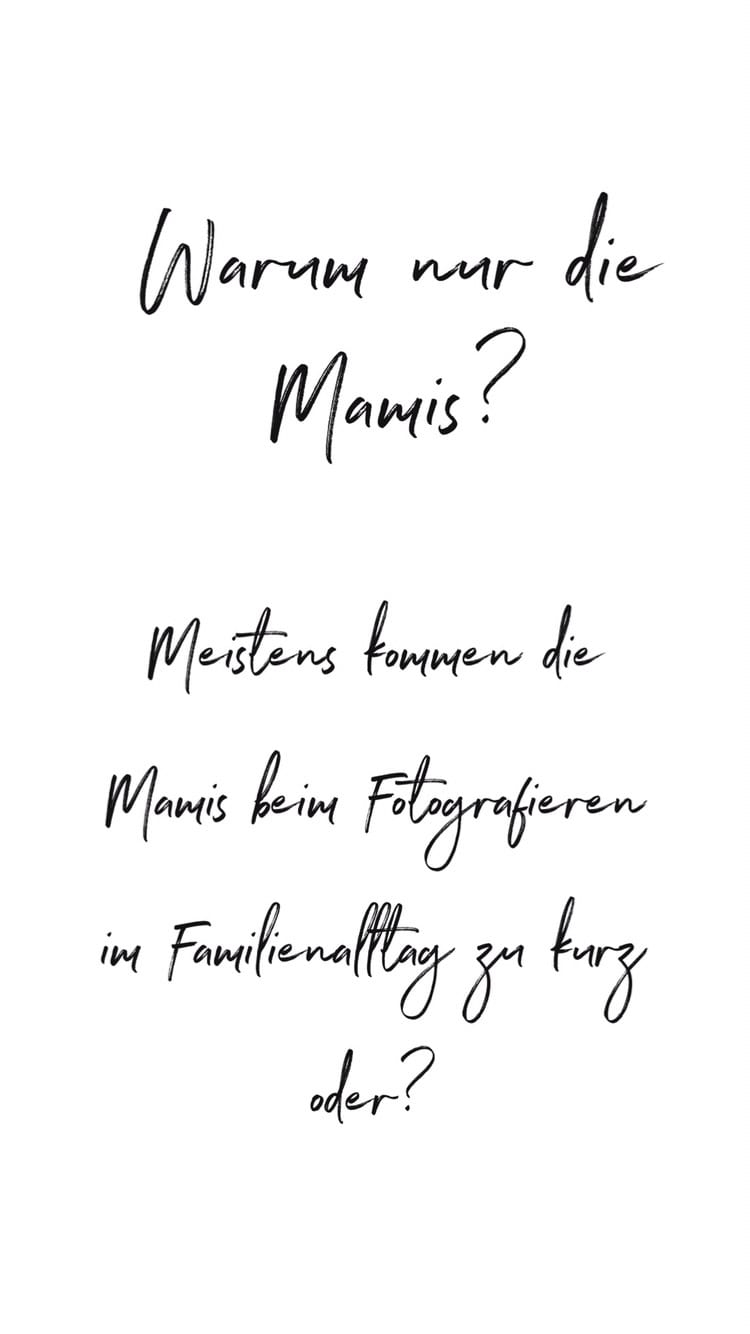 Warum nur die
Mamis?
Meistens kommen die
Mamis beim Fotografieren
im Familienallltag zu kurz
oder?